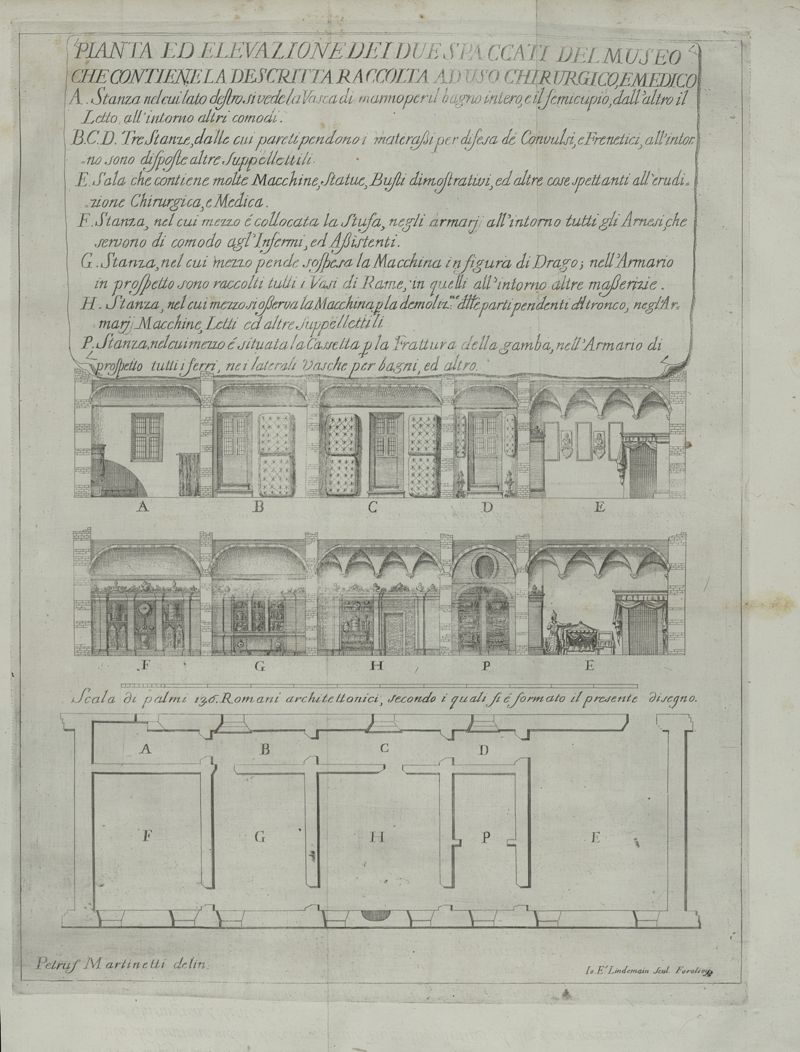 PIANTA ED ELEVAZIONE DEI DUE SPACCATI DEL MUSEO
CHE CONTIENE LA DESCRITTA RACCOLTA AD USO CHIRURGICO, E MEDICO
A. Stanza nel cui lato destro si vede la Vasca di marmo per il bagno intero, e il semicupio, dall'altro il
Letto, all'intorno altri comodi.
B.C.D. Tre Stanze, dalle cui pareti pendono i materassi per difesa de Convulsi, e Frenetici, all'intor=
=no sono disposte altre Suppellettili.
E. Sala che contiene molte Macchine, Statue, Busti dimostrativi, ed altre cose spettanti all'erudi=
=zione Chirurgica, e Medica.
F. Stanza, nel cui mezzo é collocata la Stufa, negli armarj all'intorno tutti gli Arnesi, che
servono di comodo agl'Infermi, ed Assistenti.
G. Stanza, nel cui mezzo pende sospesa la Macchina in figura di Drago; nell'Armario
in prospetto sono raccolti tutti i Vasi di Rame, in quelli all'intorno altre masserizie.
H. Stanza, nel cui mezzo si osserva la Macchina p la demoliz.ne dlle parti pendenti dl tronco, negl'Ar=
=marj Macchine, Letti ed altre Suppellettili
P. Stanza, nel cui mezzo é situata la Cassetta p la Frattura della gamba, nell'Armario di
prospetto tutti i ferri, ne i laterali Vasche per bagni, ed altro.
A B C D E
F G H P E
Scala di palmi 136. Romani architettonici, secondo i quali si é formato il presente disegno.
A B C D
F G H P E
Petrus Martinetti delin.
Io. E. Lindemain Scul. Foroliv.